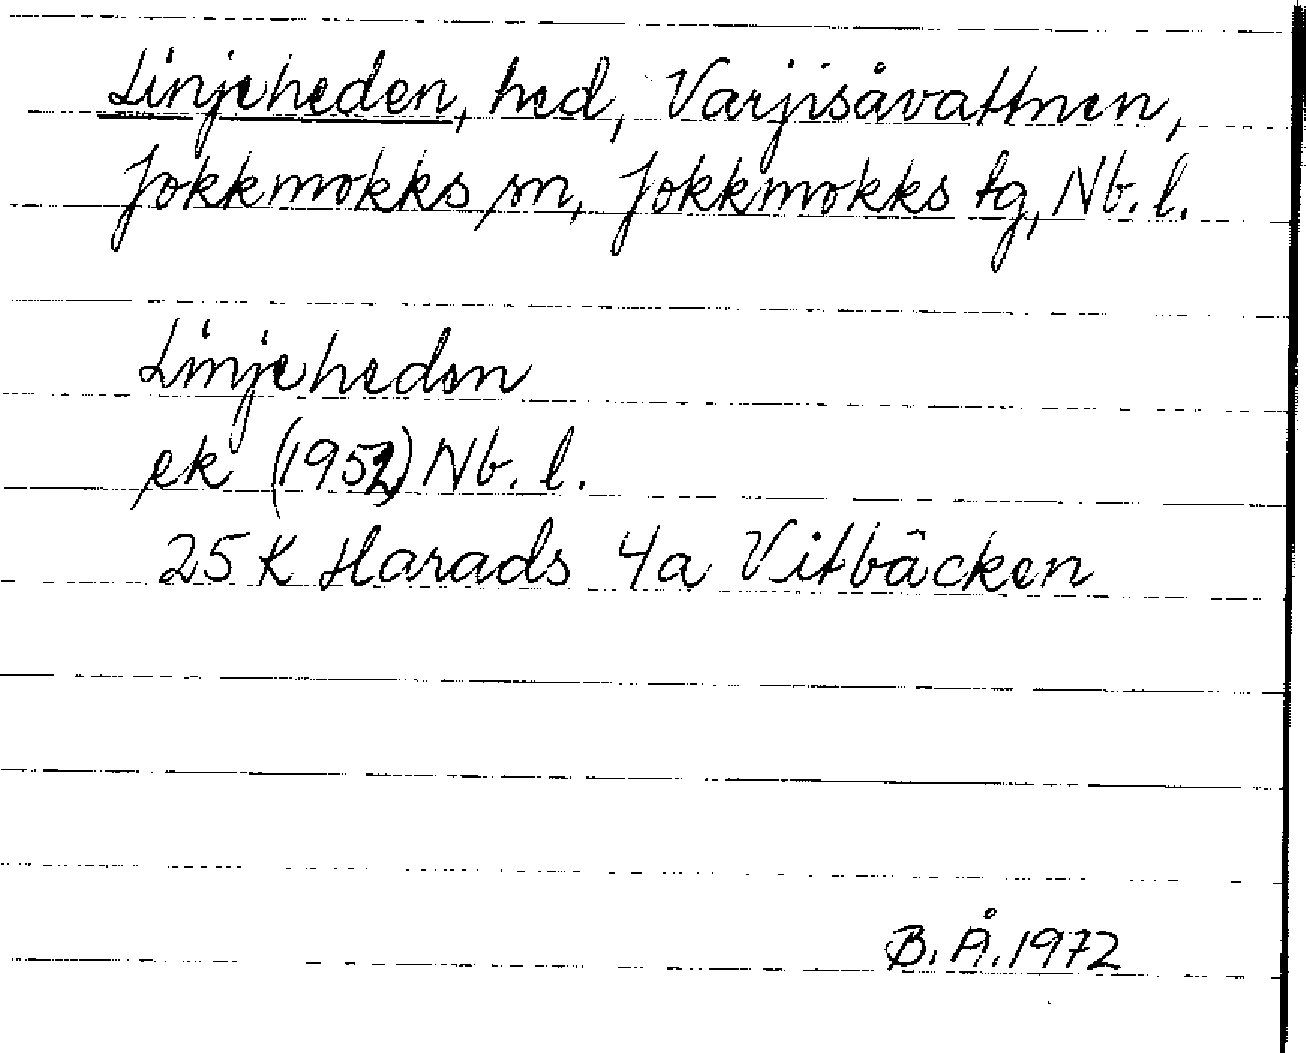 Linjeheden, hed, Varjisåvattnen,
Jokkmokks sn, Jokkmokks tg, Nb. l.
Linjeheden
ek (1952) Nb. l.
25 K Harads 4a Vitbäcken
B. Å. 1972